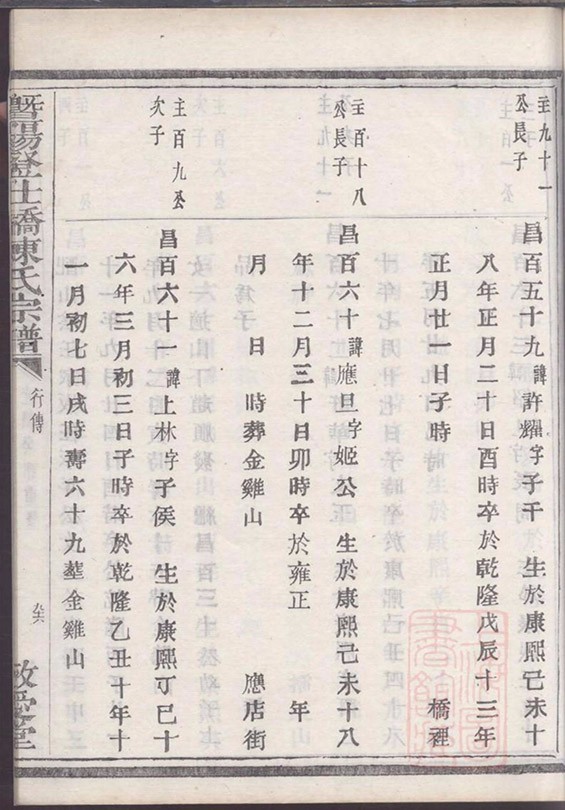 主九十一
公長子
昌百五十九諱許耀字子干　生於康熙己未十
八年正月二十日酉時卒於乾隆戊辰十三年
正月廿一日子時　橋裡
主百十八
公長子
昌百六十諱應旦字姬公　生於康熙己未十八
年十二月三十日卯時卒於雍正　年
月　日　時葬金雞山　應店街
主百九公
次子
昌百六十一諱上林字子侯　生於康熙丁巳十
六年三月初三日子時卒於乾隆乙丑十年十
一月初七日戌時壽六十九塟金雞山
暨陽登仕橋陳氏宗譜
行傳
敦睦堂